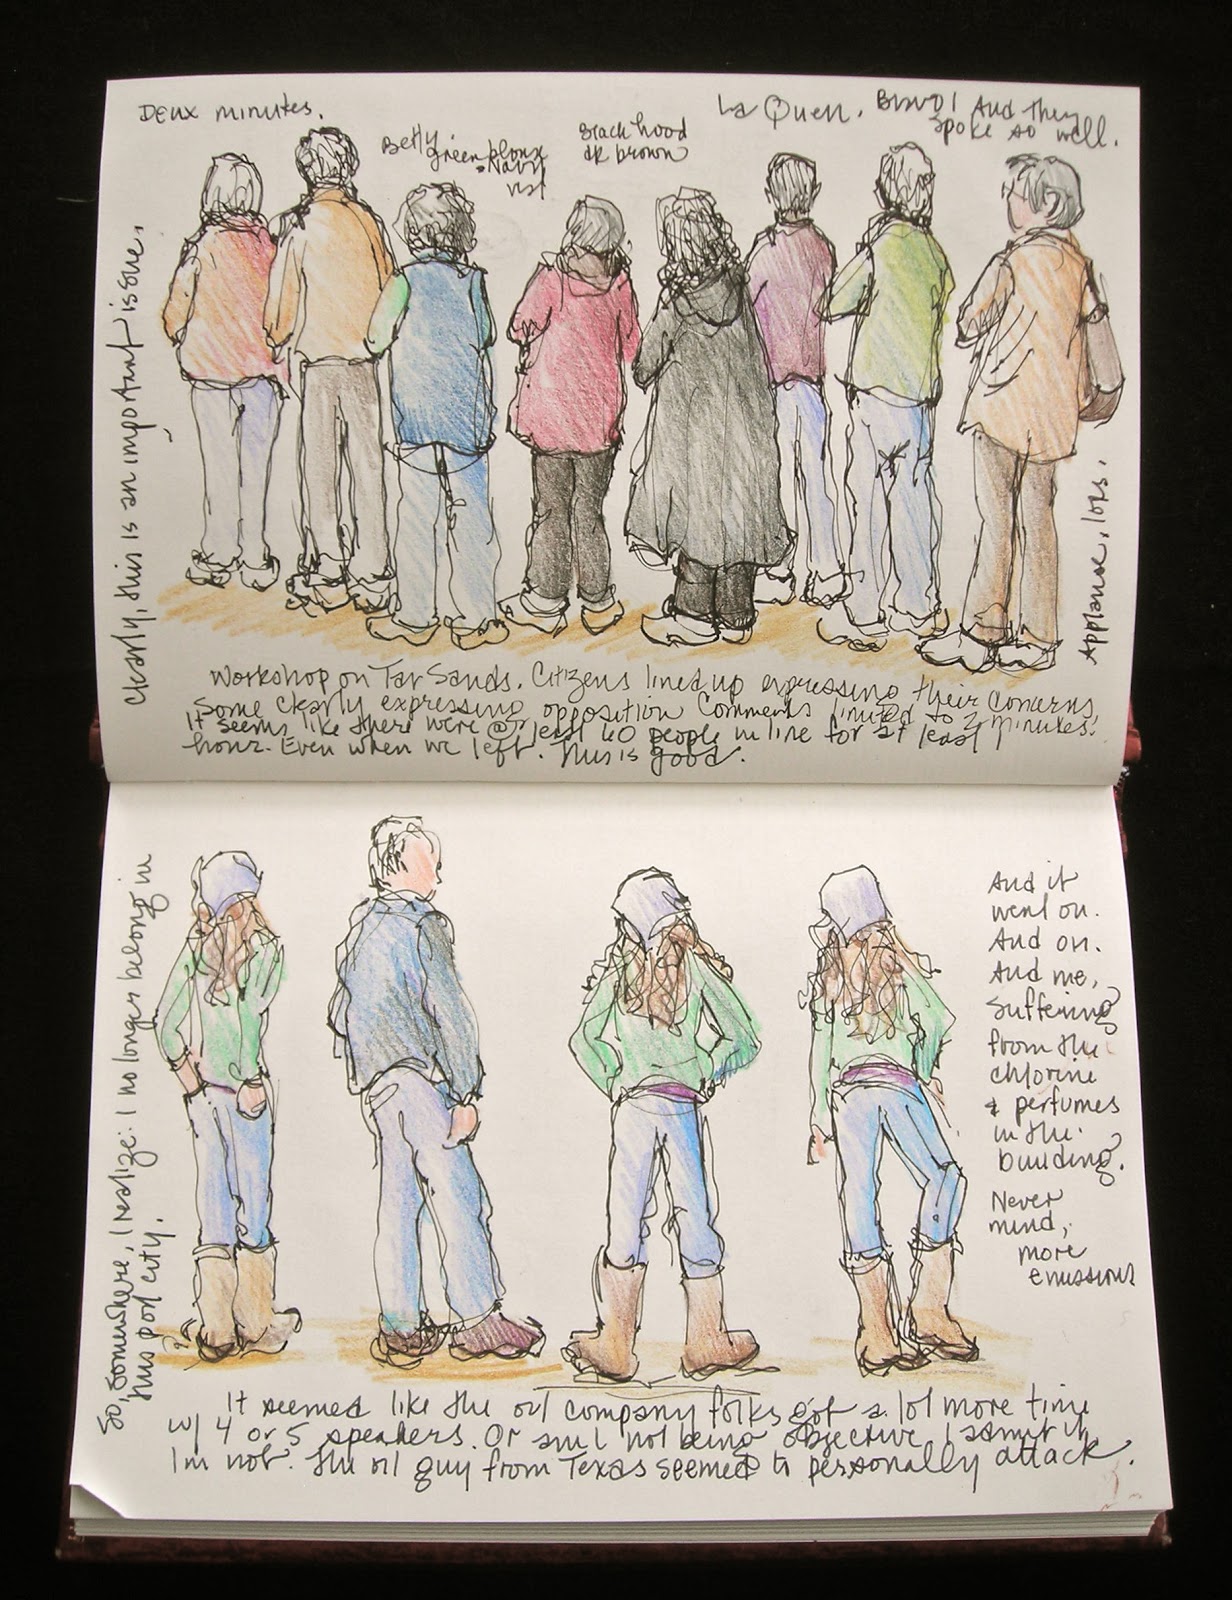 Deux minutes.
La Queu. Bravo! And they
spoke so well.
Betty.
green blouse
+ Navy
vest
Black hood
dk brown
Clearly, this is an important issue.
Applause, lots.
Workshop on Tar Sands. Citizens lined up expressing their concerns,
Some clearly expressing opposition Comments limited to 2 minutes.
It seems like there were @ least 60 people in line for at least 1
hour. Even when we left. This is good.
So, somewhere, I realize: I no longer belong in
this city.
And it
went on.
And on.
And me,
suffering
from the
chlorine
+ perfumes
in the
building.
Never
mind,
more
emissions
It seemed like the oil company folks got a lot more time
w/ 4 or 5 speakers. Or am I not being objective I admit it,
I'm not. The oil guy from Texas seemed to personally attack.